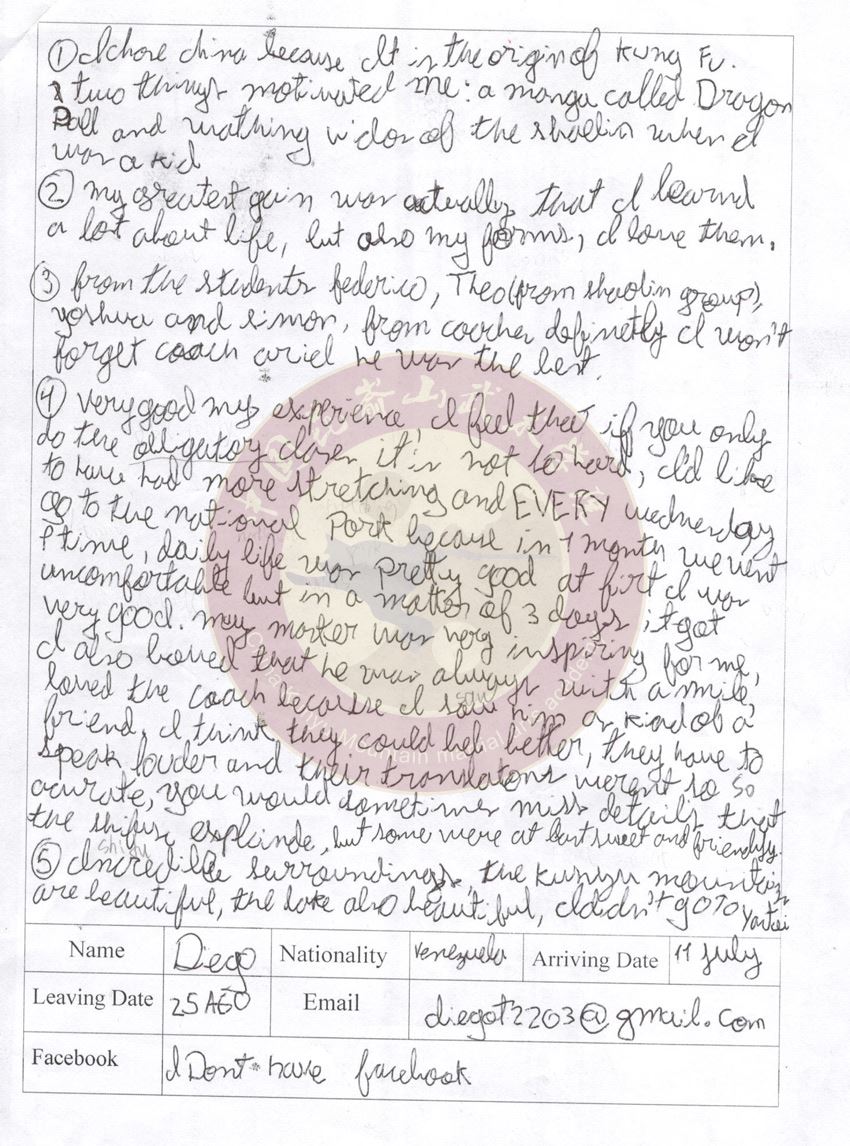 ① I chose china because It is the origin of Kung Fu.
two things motivated me: a manga called Dragon
Ball and wathing videos of the shaolin when I
was a kid
② my greatest gain was actually that I learnd
a lot about life, but also my forms, I love them.
③ from the students federico, Theo (from shaolin group),
yoshua and simon, from coaches definetly I won't
forget coach ariel he was the best.
④ very good my experience I feel that if you only
do the obligatory clases it's not so hard, I'd like
to have had more stretching and EVERY wednesday
go to the national Park because in 1 month we went
1 time, daily life was pretty good at first I was
uncomfortable but in a matter of 3 days it got
very good. my master was very inspiring for me,
I also loved that he was always with a smile,
loved the coach because I saw him as kind of a
friend. I think they could help better, they have to
speak louder and their translatons werent so so
acurate, you would sometimes miss details that
the shifus explainde, but some were at last sweet and friendly.
shifu
⑤ Incredible surroundings, the kunyu mountains
are beautiful, the lake also beautiful, I didn't go to Yantai
Name Diego Nationality Venezuela Arriving Date 11 july
Leaving Date 25 AGO Email diegot2203@gmail.com
Facebook I Dont have facebook
中国 昆嵛山武术
China Kunyu Mountain martial arts academy